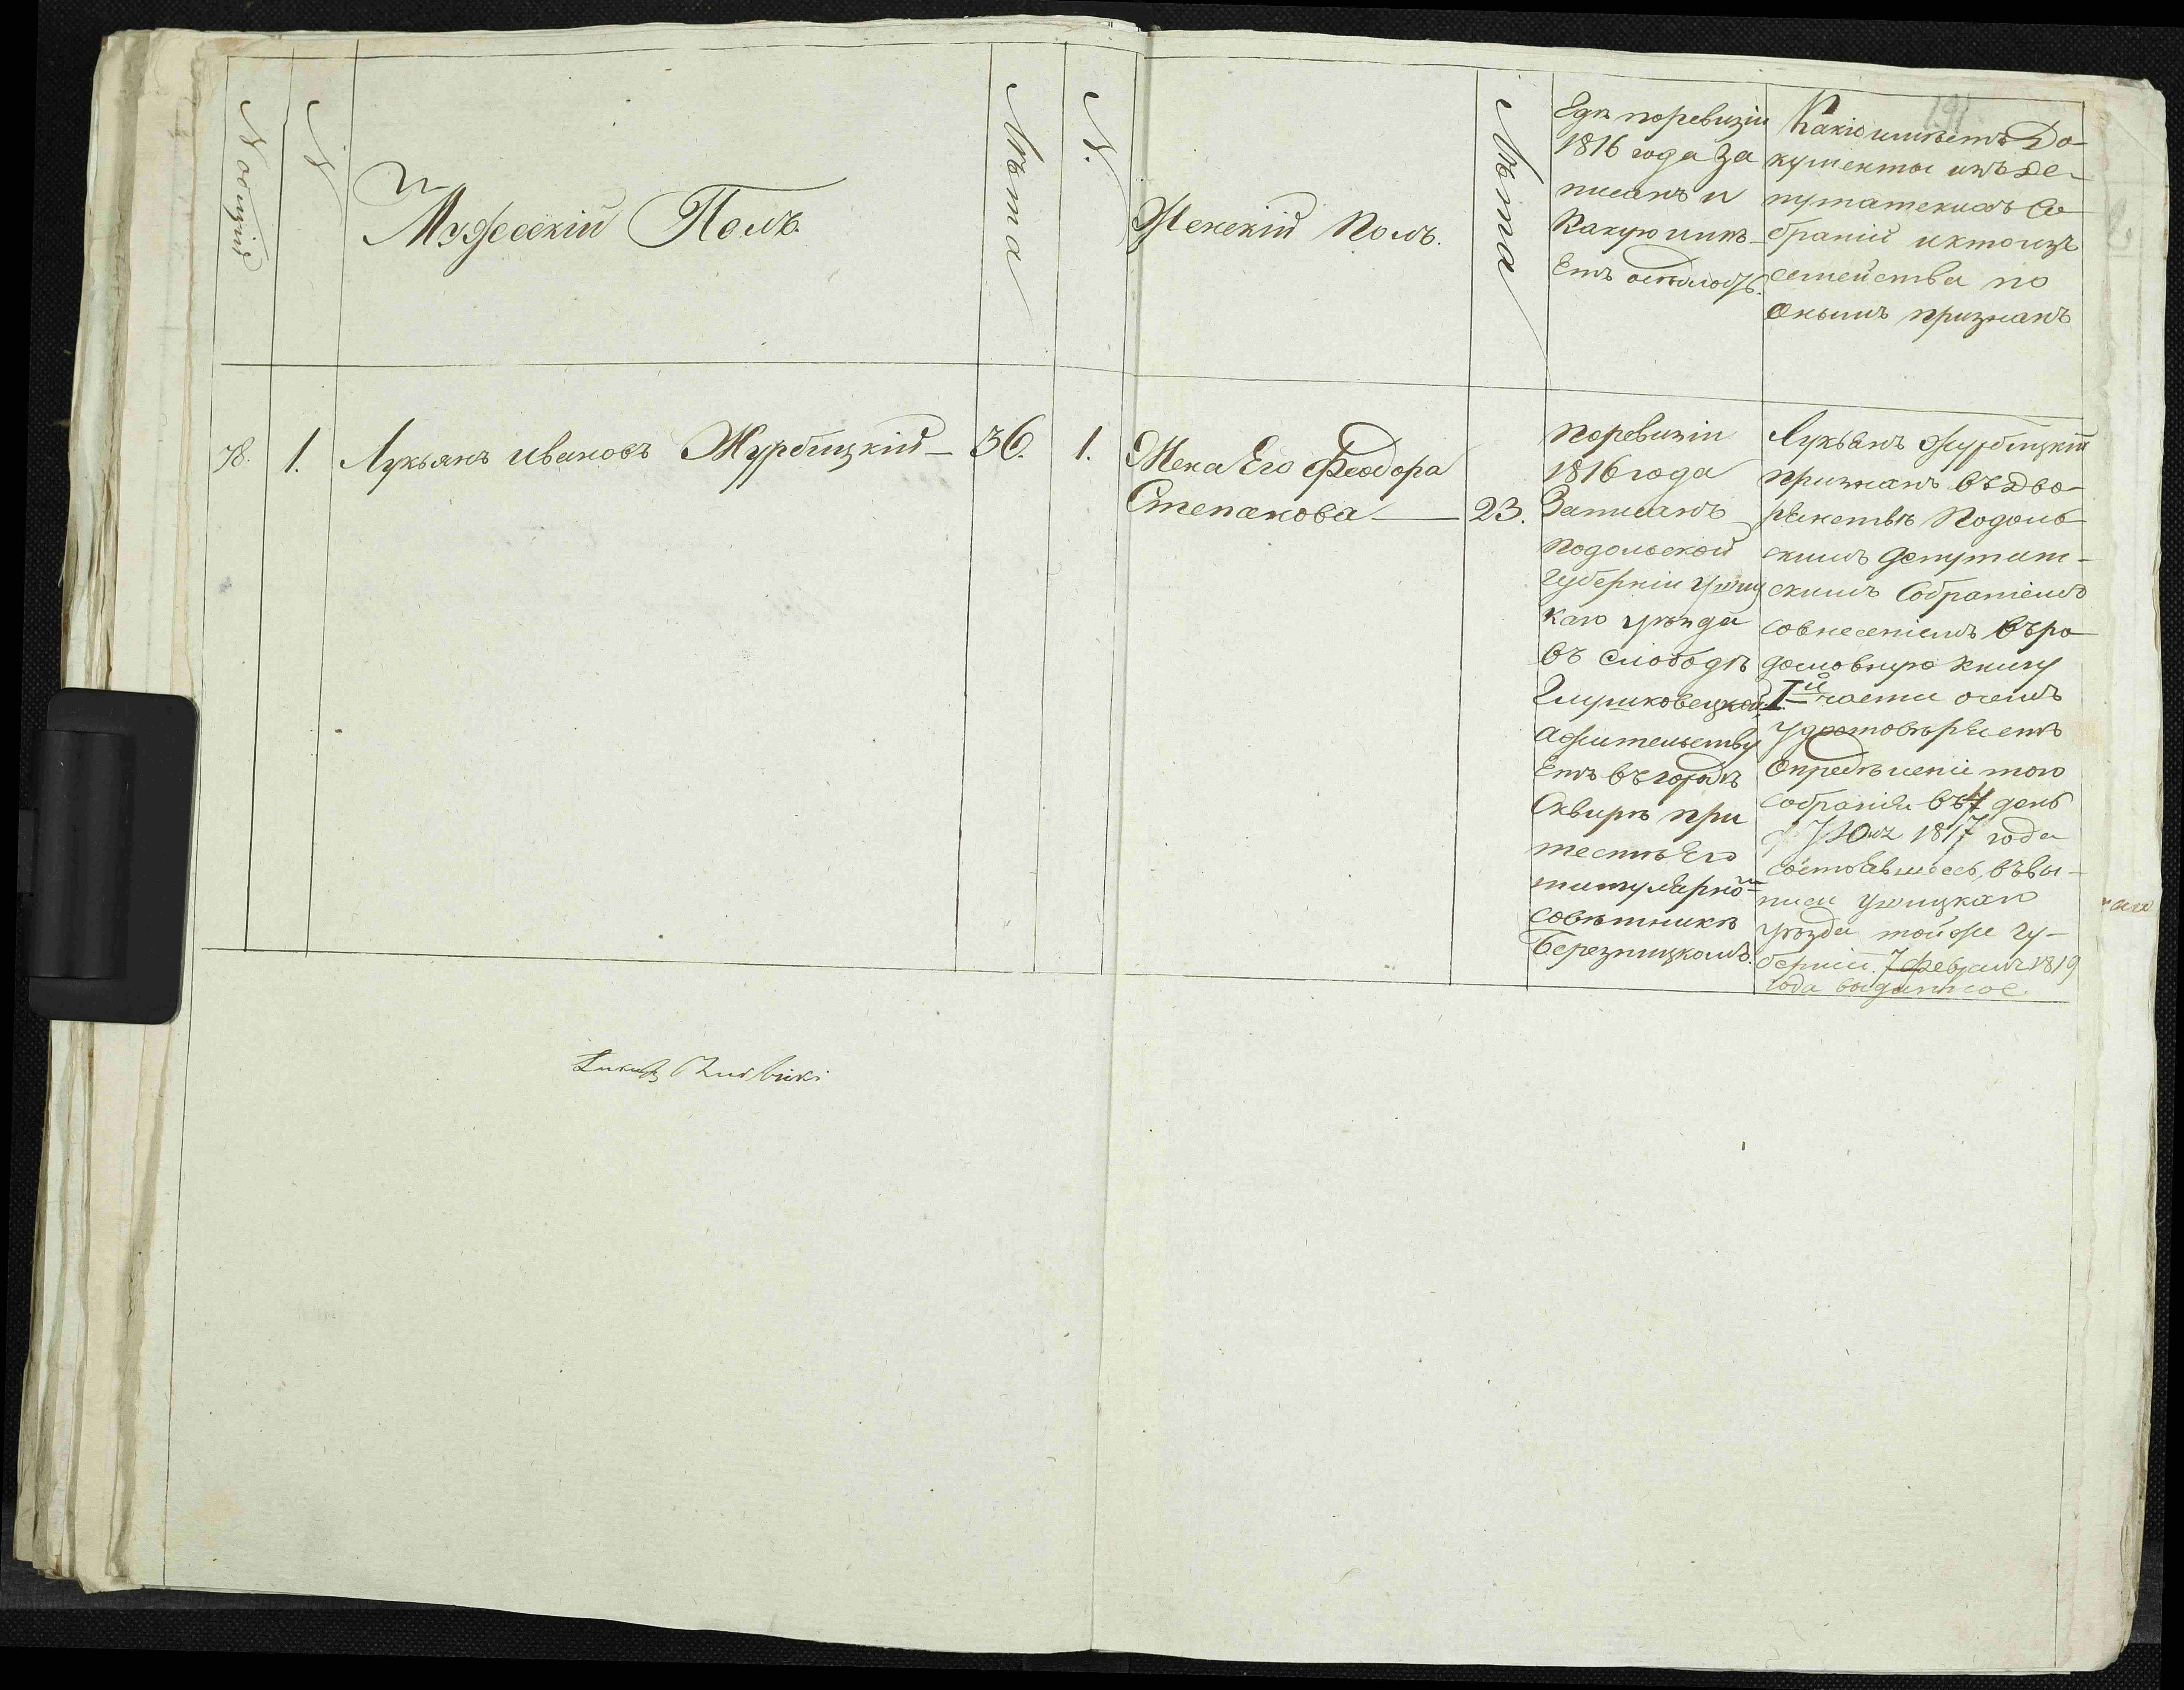 191
N общій
N
Мужескій Полъ
Лѣта
N.
Женскій Полъ.
Лѣта
Гдѣ поревизіи
1816 года За
писанъ и
Какую имѣ-
Етъ осѣдлость.
Какіе имѣетъ До-
кументы изъ де-
путатскихъ Со-
браній и кто изъ
семейства по
онымъ признанъ
78.
1.
Лукьянъ Ивановъ Журбицкій — 36.
1.
Жена Его Феодора
Степанова — 23.
Поревизіи
1816 года
Записанъ
Подольской
Губерніи Ушиц
каго уѣзда
въ слободѣ
Глушковецкой,
а жительству
Етъ въ городѣ
Сквирѣ при
тестѣ Его
титулярномъ
совѣтникѣ
Березницкомъ.
Лукьянъ Журбицкій
признанъ въ Дво-
рянствѣ Подоль-
скимъ Депутат-
скимъ Собраніемъ
со внесеніемъ въ ро-
дословную книгу
I-й части о чемъ
удостовѣряетъ
Опредѣленіе того
собранія въ 4 день
Юля 1817 года
состоявшееся, въ вы-
писи Ушицкаго
уѣзда той же Гу-
берніи 7 февраля 1819
года выданное.
Żurbicki